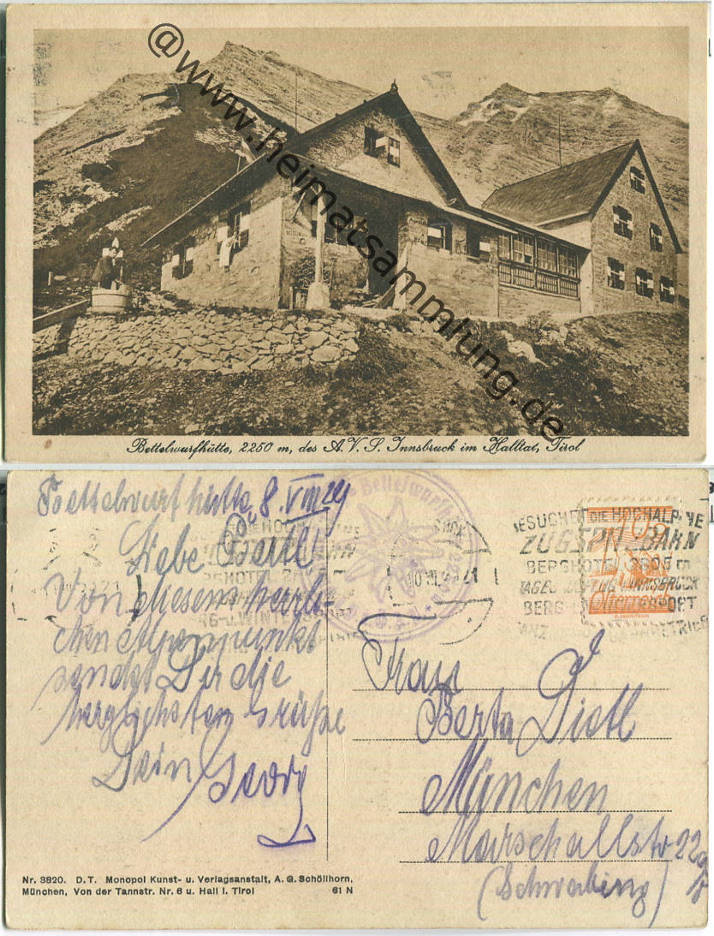 @www.heimatsammlung.de
Bettelwurfhütte, 2250 m, des A.V.S. Innsbruck im Halltal, Tirol
Bettelwurfhütte, 8. VIII 29
Liebe Bertl!
Von diesem herrli-
chen Alpenpunkt
sendet Dir die
herzlichsten Grüße
Dein Georg
BESUCHET DIE HOCHALPINE
ZUGSPITZBAHN
Österreich
Frau
Berta Distl
München
Marschallstr 22
(Schwabing)
Nr. 3820. D.T. Monopol Kunst- u. Verlagsanstalt, A. G. Schöllhorn,
München, Von der Tannstr. Nr. 6 u. Hall i. Tirol 61 N